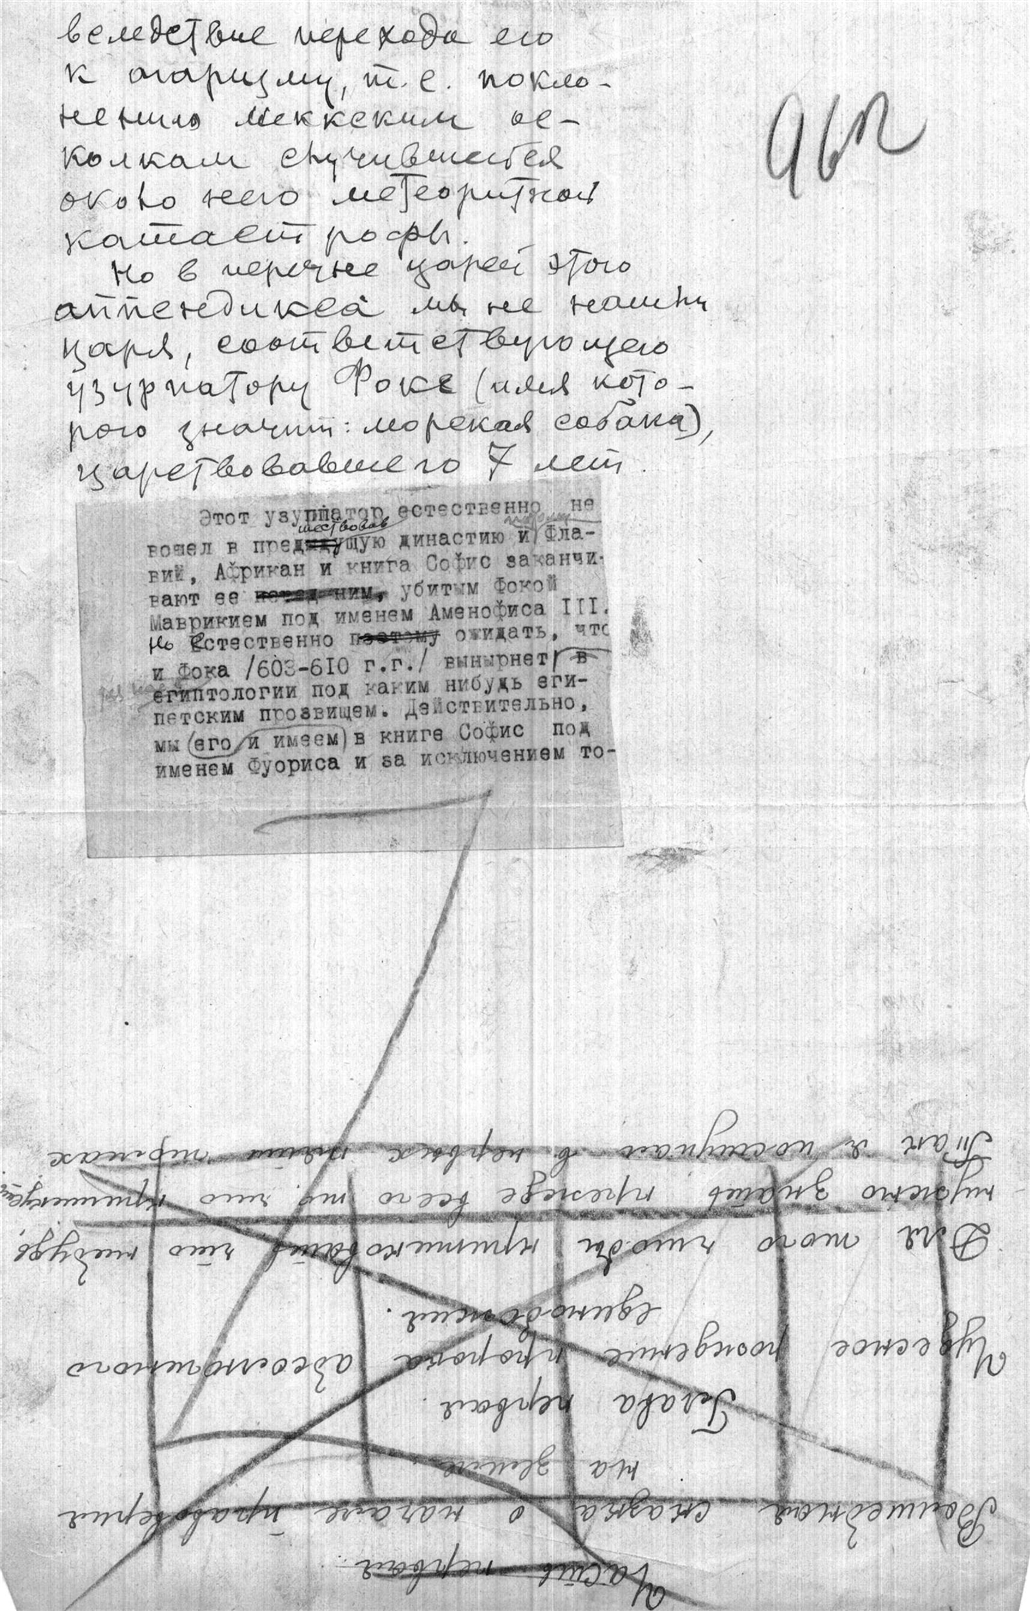 вследствие перехода его
к агаризму, т.е. покло-
нению меккским ос-
колкам случившейся
около него метеоритной
катастрофы.
96п
Но в перечне царей этого
аппендикса мы не нашли
царя, соответствующего
узурпатору Фоке (имя кото-
рого значит: морская собака),
царствовавшего 7 лет.
Этот узурпатор естественно не
шествовав
вошел в предыдущую династию и Фла-
вий, Африкан и книга Софис заканчи-
вают ее перед ним, убитым Фокой
Маврикием под именем Аменофиса III.
Но Естественно поэтому ожидать, что
и Фока /603-610 г.г./ вынырнет в
египтологии под каким нибудь еги-
петским прозвищем. Действительно,
мы его и имеем в книге Софис под
именем Фуориса и за исключением то-
Часть первая
Волшебная сказка о начале правоверия
на земле.
Глава первая.
Чудесное рождение пророка абсолютного
единобожия.
Для того чтобы критиковать что нибудь,
нужно знать прежде всего то, что критикуешь
Так я поступаю в первых пяти